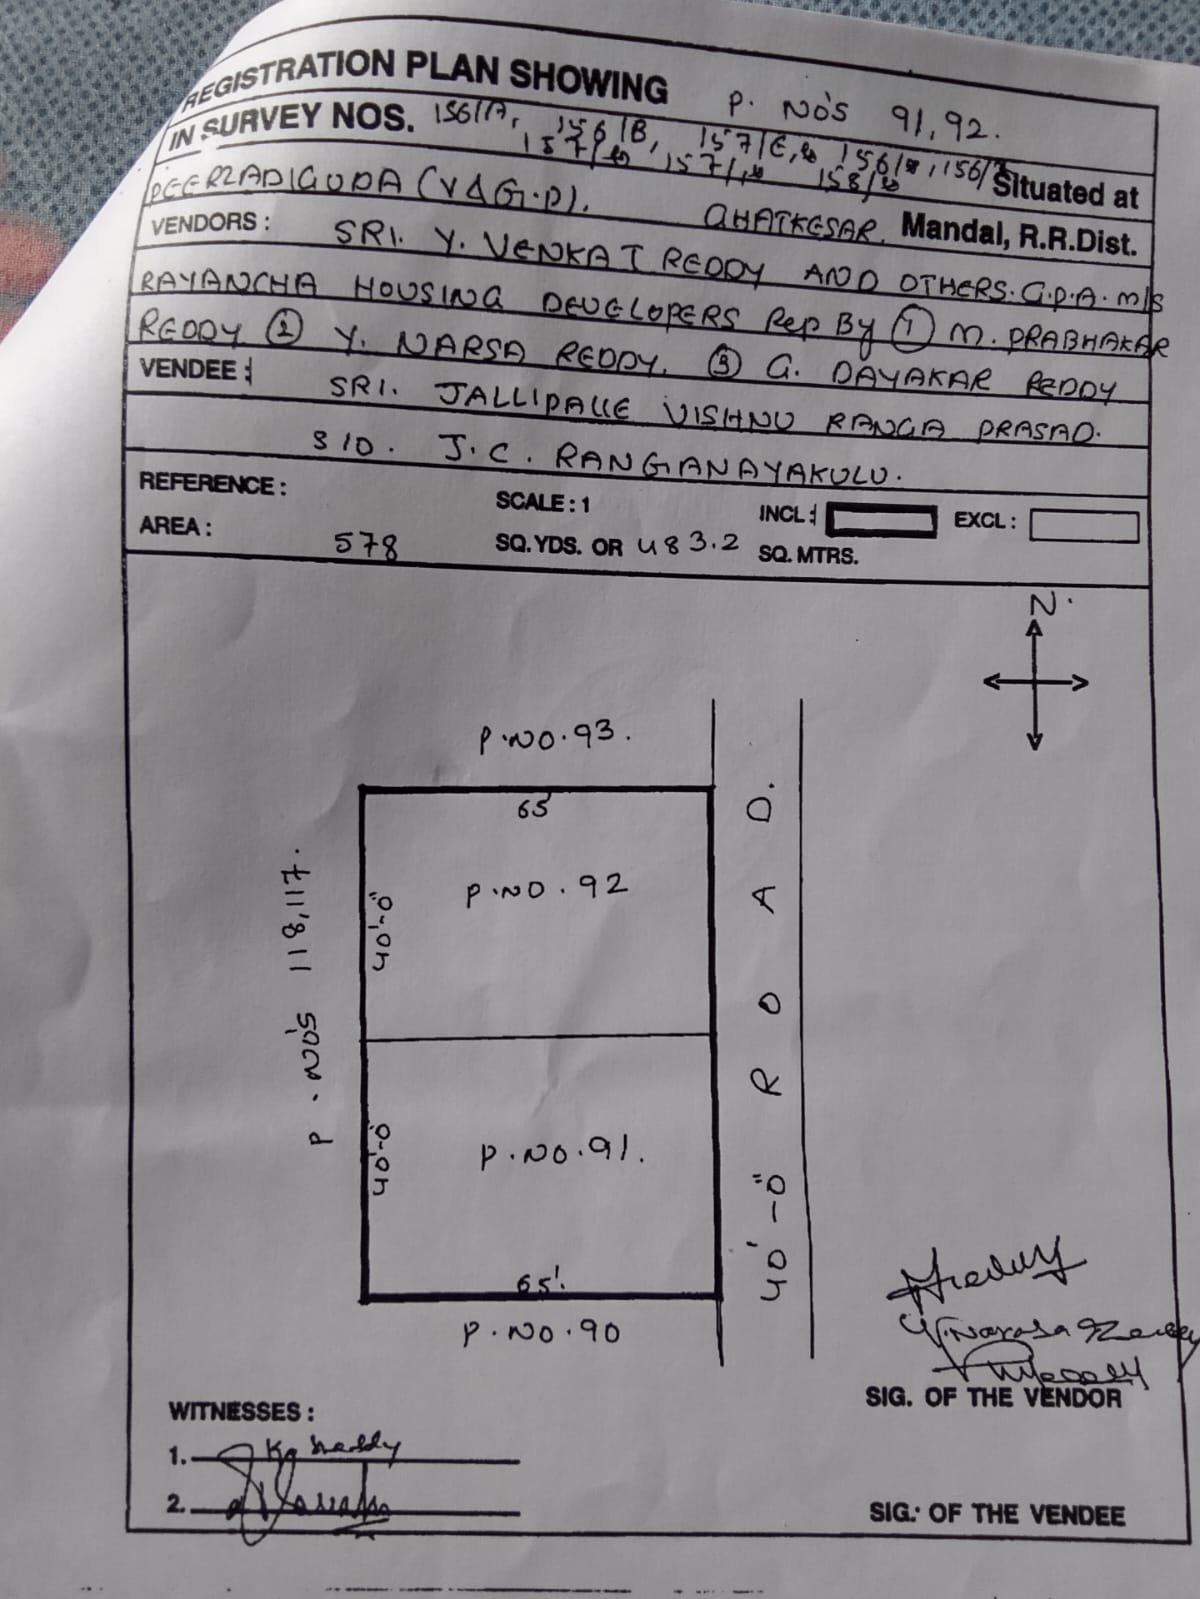 REGISTRATION PLAN SHOWING P. NO'S 91,92.
IN SURVEY NOS. 156/A, 156/B, 157/E, 156/ 156/
157/ 157/ 158/ Situated at
PEERZADIGUDA (V&G.P). GHATKESAR. Mandal, R.R.Dist.
VENDORS: SRI. Y. VENKAT REDDY AND OTHERS. G.P.A. M/S
RAYANCHA HOUSING DEVELOPERS Rep By ① M. PRABHAKAR
REDDY ② Y. NARSA REDDY. ③ G. DAYAKAR REDDY
VENDEE: SRI. JALLIPALLE VISHNU RANGA PRASAD.
S/O. J.C. RANGANAYAKULU.
REFERENCE: SCALE: 1 INCL: EXCL:
AREA: 578 SQ. YDS. OR 483.2 SQ. MTRS.
N.
P.NO.93.
65'
P.NO.92
40'-0"
P.NOS 118,117.
P.NO.91.
40'-0"
65'.
P.NO.90
40'-0" ROAD.
Y. Narasa Reddy
SIG. OF THE VENDOR
WITNESSES:
1.
2.
SIG. OF THE VENDEE